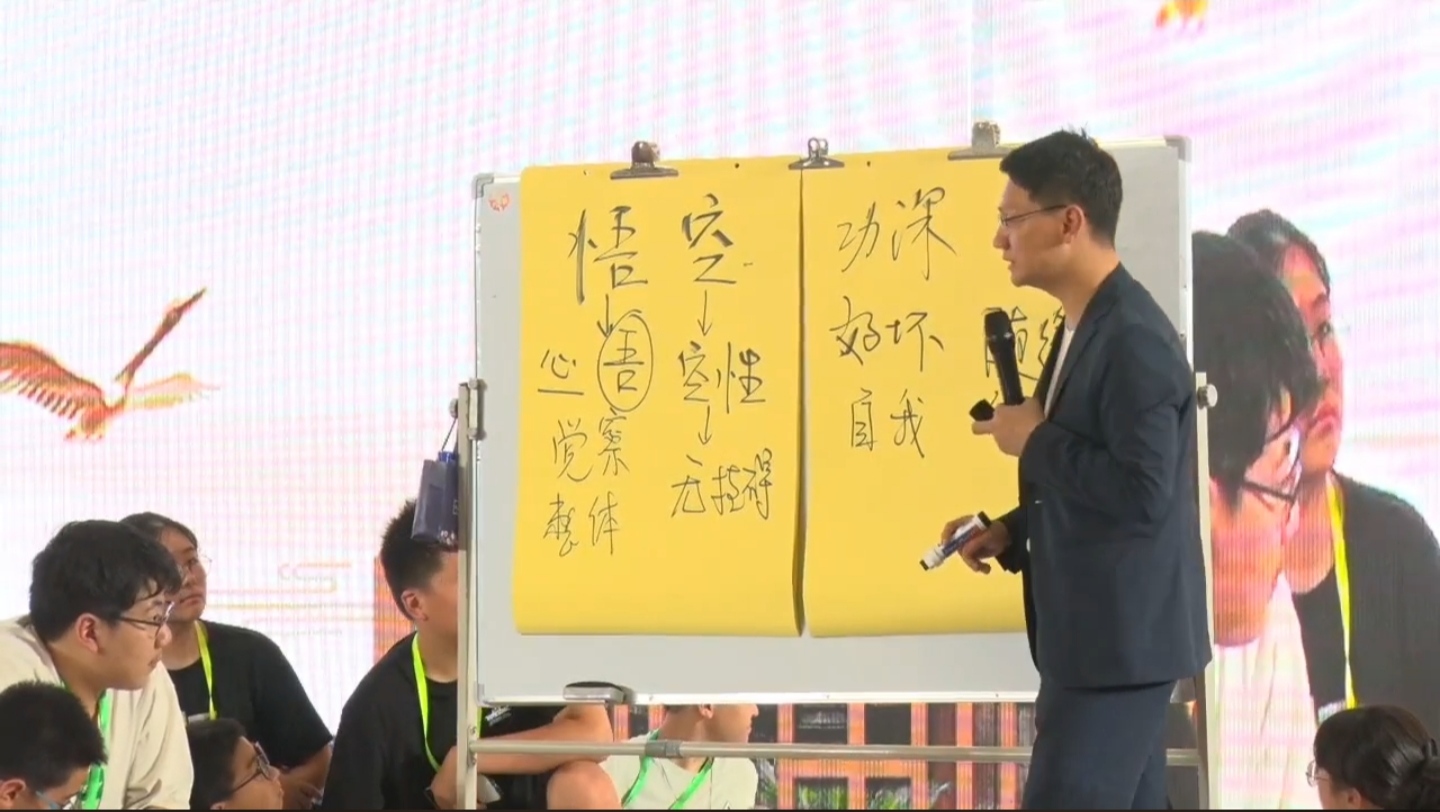 悟 空
心 吾 空性
觉察 无挂碍
整体
功深
好坏 随缘
自我